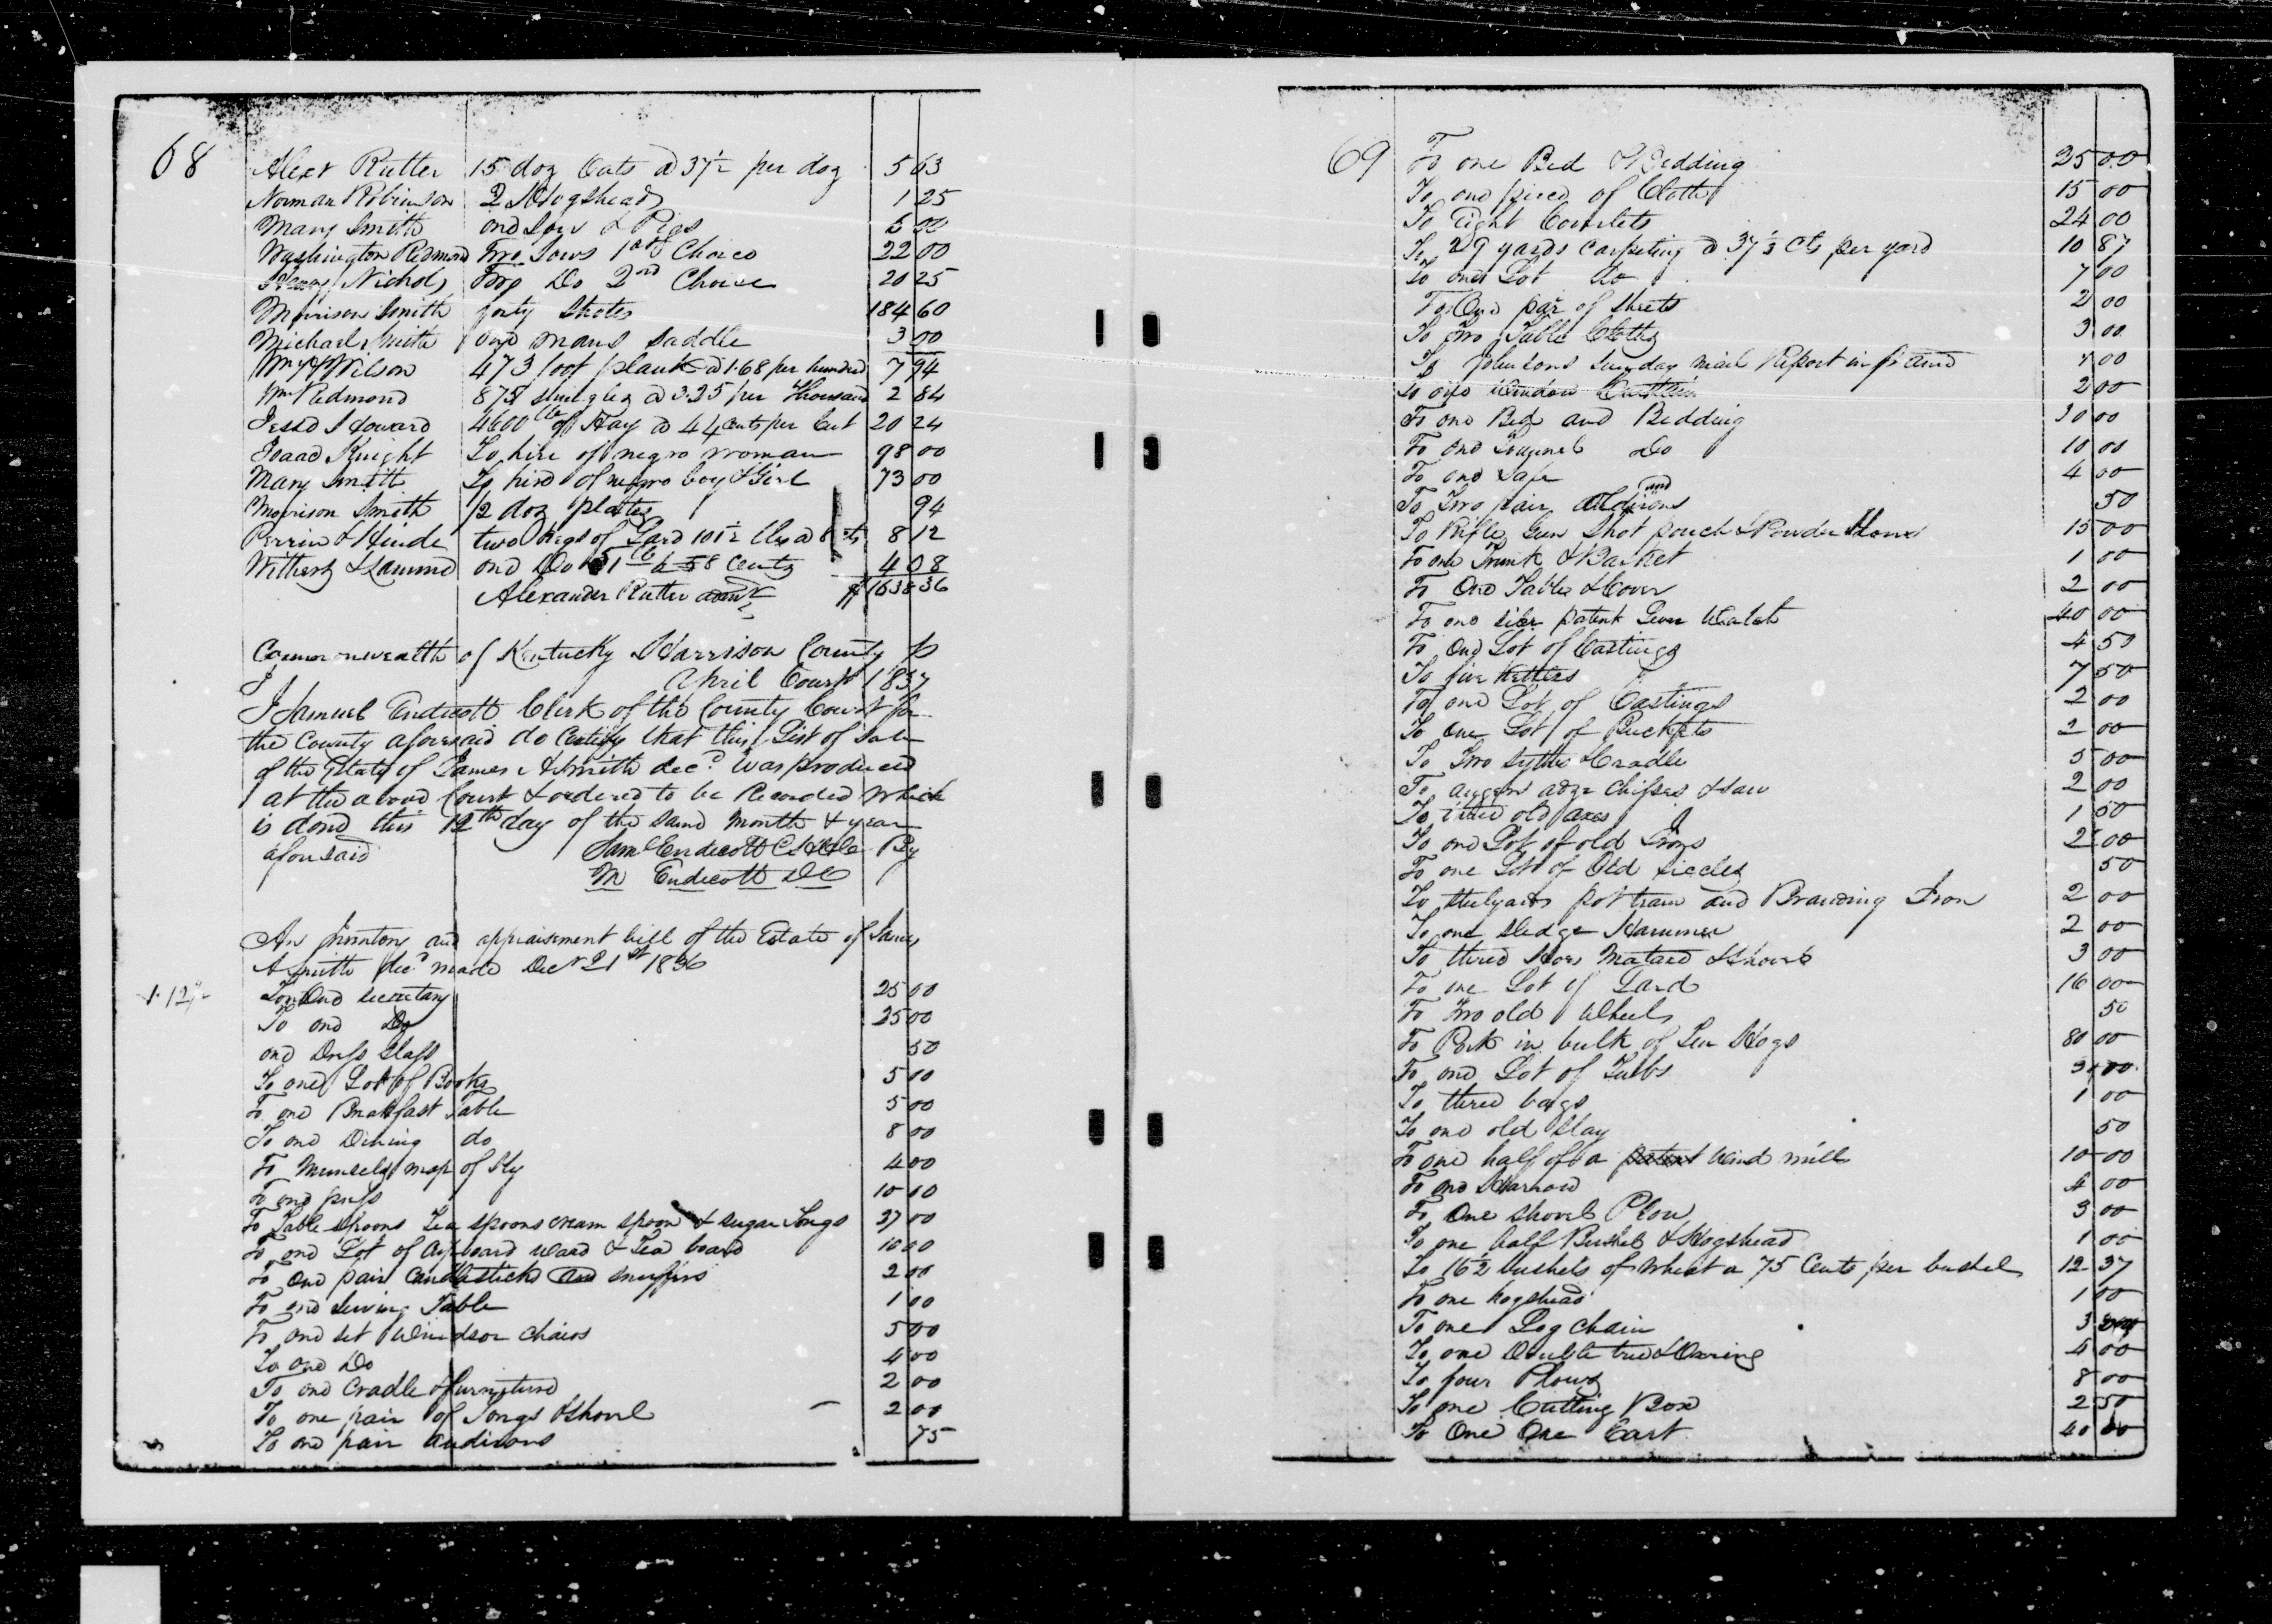 68
Alexr Rutter 15 doz Oats @ 37½ per doz 5 63
Norman Robinson 2 Hogsheads 1 25
Mary Smith one Sow & Pigs 6 00
Washington Redmond Two Sows 1st Choice 22 00
Henry Nichols Two Do 2nd Choice 20 25
Morrison Smith forty Shotes 184 60
Michael Smith one mans Saddle 3 00
Wm Wilson 473 foot plank @ 1.68 per hundred 7 94
Wm Redmond 875 shingles @ 3.25 per Thousand 2 84
Jesse Howard 4600 lb of Hay @ 44 cents per Cwt 20 24
Isaac Knight To hire of negro woman 98 00
Mary Smith To hire of negro boy & Girl 73 00
Morrison Smith ½ doz plates 94
Perrin & Hinde two Kegs of Lard 101½ lbs @ 8 cts 8 12
Withers & Lamme one Do 51 lb @ 8 Cents 4 08
Alexander Rutter admr $1638 36
Commonwealth of Kentucky Harrison County Ss
April Court 1837
I Samuel Endicott Clerk of the County Court for
the County aforesaid do Certify that this List of Sale
of the Estate of James A Smith decd was produced
at the above Court & ordered to be Recorded which
is done this 12th day of the same month & year
aforesaid Saml Endicott C H C By
M Endicott DC
An Inventory and appraisement bill of the Estate of James
A Smith decd made Decr 21st 1836
To One Secretary 25 00
To one Do 25 00
one Dress Glass 50
To one Lot of Books 5 00
To one Breakfast Table 5 00
To one Dining do 8 00
To Munsels map of Ky 4 00
To one press 10 00
To Table spoons Tea spoons cream spoon & sugar Tongs 37 00
To one Lot of Cupboard ware & Tea board 10 00
To one pair Candlesticks and snuffers 2 00
To one Serving Table 1 00
To one set Windsor Chairs 5 00
To one Do 4 00
To one Cradle & furniture 2 00
To one pair of Tongs & shovel 2 00
To one pair andirons 75
69
To one Bed & Bedding 25 00
To one piece of Cloth 15 00
To Eight Coverlets 24 00
To 29 yards Carpeting @ 37½ Cts per yard 10 87
To one Lot do 7 00
To One pair of Sheets 2 00
To Two Table Cloths 3 00
To Johnsons Sunday mail Report in frame
To one Window Curtain 2 00
To one Bed and Bedding 30 00
To one Do 10 00
To one Safe 4 00
To Two pair andirons 50
To Rifle Gun Shot pouch & Powder Horn 15 00
To one Trunk & Basket 1 00
To One Table & Cover 2 00
To one silver patent Lever Watch 40 00
To One Lot of Castings 4 50
To five Kettles 7 50
To one Lot of Castings 2 00
To one Lot of Buckets 2 00
To Two Sythes & Cradle 5 00
To augers adze Chissels & saw 2 00
To three old axes 1 50
To one Lot of old Irons 2 00
To one Lot of Old Siccles 50
To Stelyards pot tram and Branding Iron 2 00
To one Sledge Hammer 2 00
To three Hoes Matock & Shovel 3 00
To one Lot of Lard 16 00
To Two old Wheels 50
To Pork in bulk of Ten Hogs 80 00
To one Lot of Tubs 3 00
To three bags 1 00
To one old Slay 50
To one half of a patent Wind mill 10 00
To one Harrow 4 00
To One Shovel Plow 3 00
To one half Bushel & Hogshead 1 00
To 16½ bushels of Wheat @ 75 Cents per bushel 12 37
To one hogshead 1 00
To one Log chain 3 00
To one Double tree & Clevis 4 00
To four Plows 8 00
To one Cutting Box 2 50
To One Ox Cart 40 00